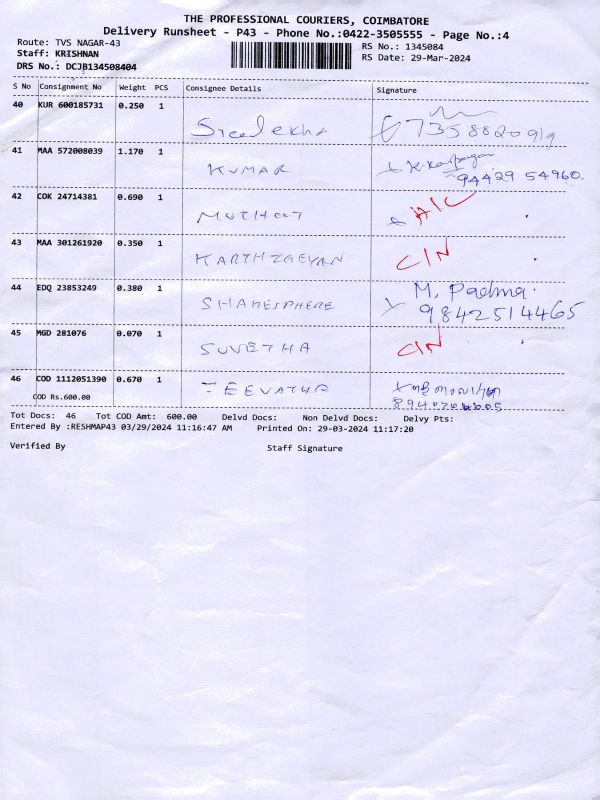 THE PROFESSIONAL COURIERS, COIMBATORE
Delivery Runsheet - P43 - Phone No.:0422-3505555 - Page No.:4
Route: TVS NAGAR-43 RS No.: 1345084
Staff: KRISHNAN RS Date: 29-Mar-2024
DRS No.: DCJB134508404
S No Consignment No Weight PCS Consignee Details Signature
40 KUR 600185731 0.250 1
Sreelekha 7358820919
41 MAA 572008039 1.170 1
KUMAR
94429 54960.
42 COK 24714381 0.690 1
MUTHOOT
43 MAA 301261920 0.350 1
KARTHIGEYAN C/N
44 EDQ 23853249 0.380 1 M. Padma.
9842514465
45 MGD 281076 0.070 1
SUVETHA C/N
46 COD 1112051390 0.670 1
COD Rs.600.00
Tot Docs: 46 Tot COD Amt: 600.00 Delvd Docs: Non Delvd Docs: Delvy Pts:
Entered By :RESHMAP43 03/29/2024 11:16:47 AM Printed On: 29-03-2024 11:17:20
Verified By Staff Signature